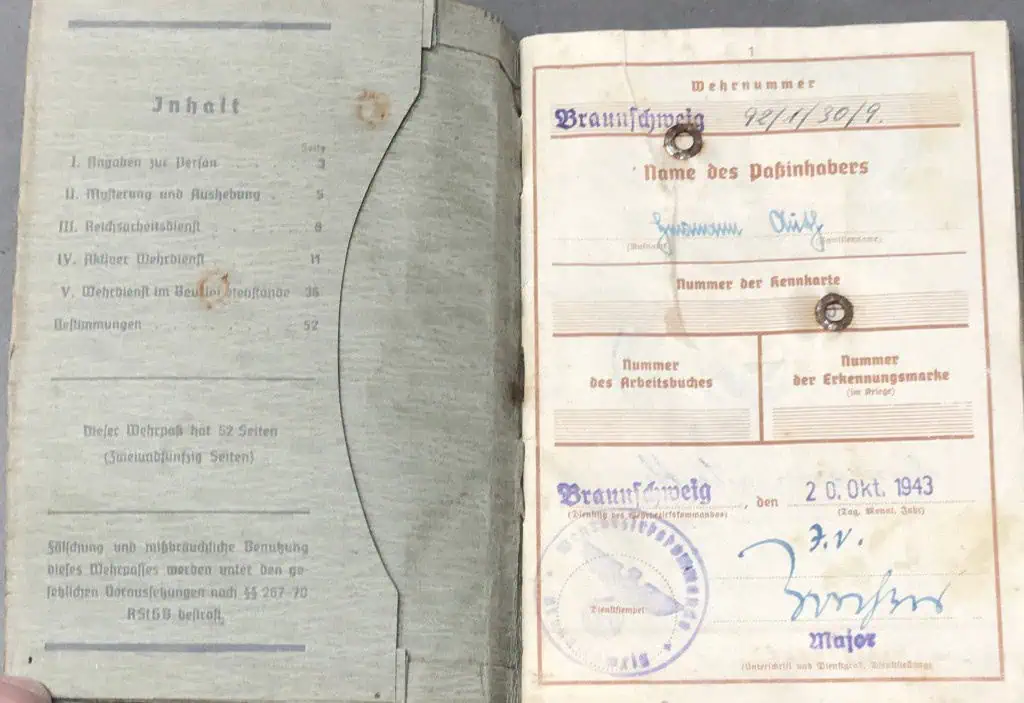 Inhalt
Seite
I. Angaben zur Person . . . . 3
II. Musterung und Aushebung . 5
III. Reichsarbeitsdienst . . . . 8
IV. Aktiver Wehrdienst . . . . 11
V. Wehrdienst im Beurlaubtenstande 36
Bestimmungen . . . . . . 52
Dieser Wehrpaß hat 52 Seiten
(Zweiundfünfzig Seiten)
Fälschung und mißbräuchliche Benutzung
dieses Wehrpasses werden unter den ge-
setzlichen Voraussetzungen nach §§ 267-70
RStGB bestraft.
1
Wehrnummer
Braunschweig 92/1/30/9.
Name des Paßinhabers
(Rufname) (Familienname)
Nummer der Kennkarte
Nummer
des Arbeitsbuches
Nummer
der Erkennungsmarke
(im Kriege)
Braunschweig, den 20. Okt. 1943
(Dienstsitz des Wehrbezirkskommandos) (Tag, Monat, Jahr)
J.V.
Wehrbezirkskommando
Dienststempel
Major
(Unterschrift und Dienstgrad, Dienststellung)